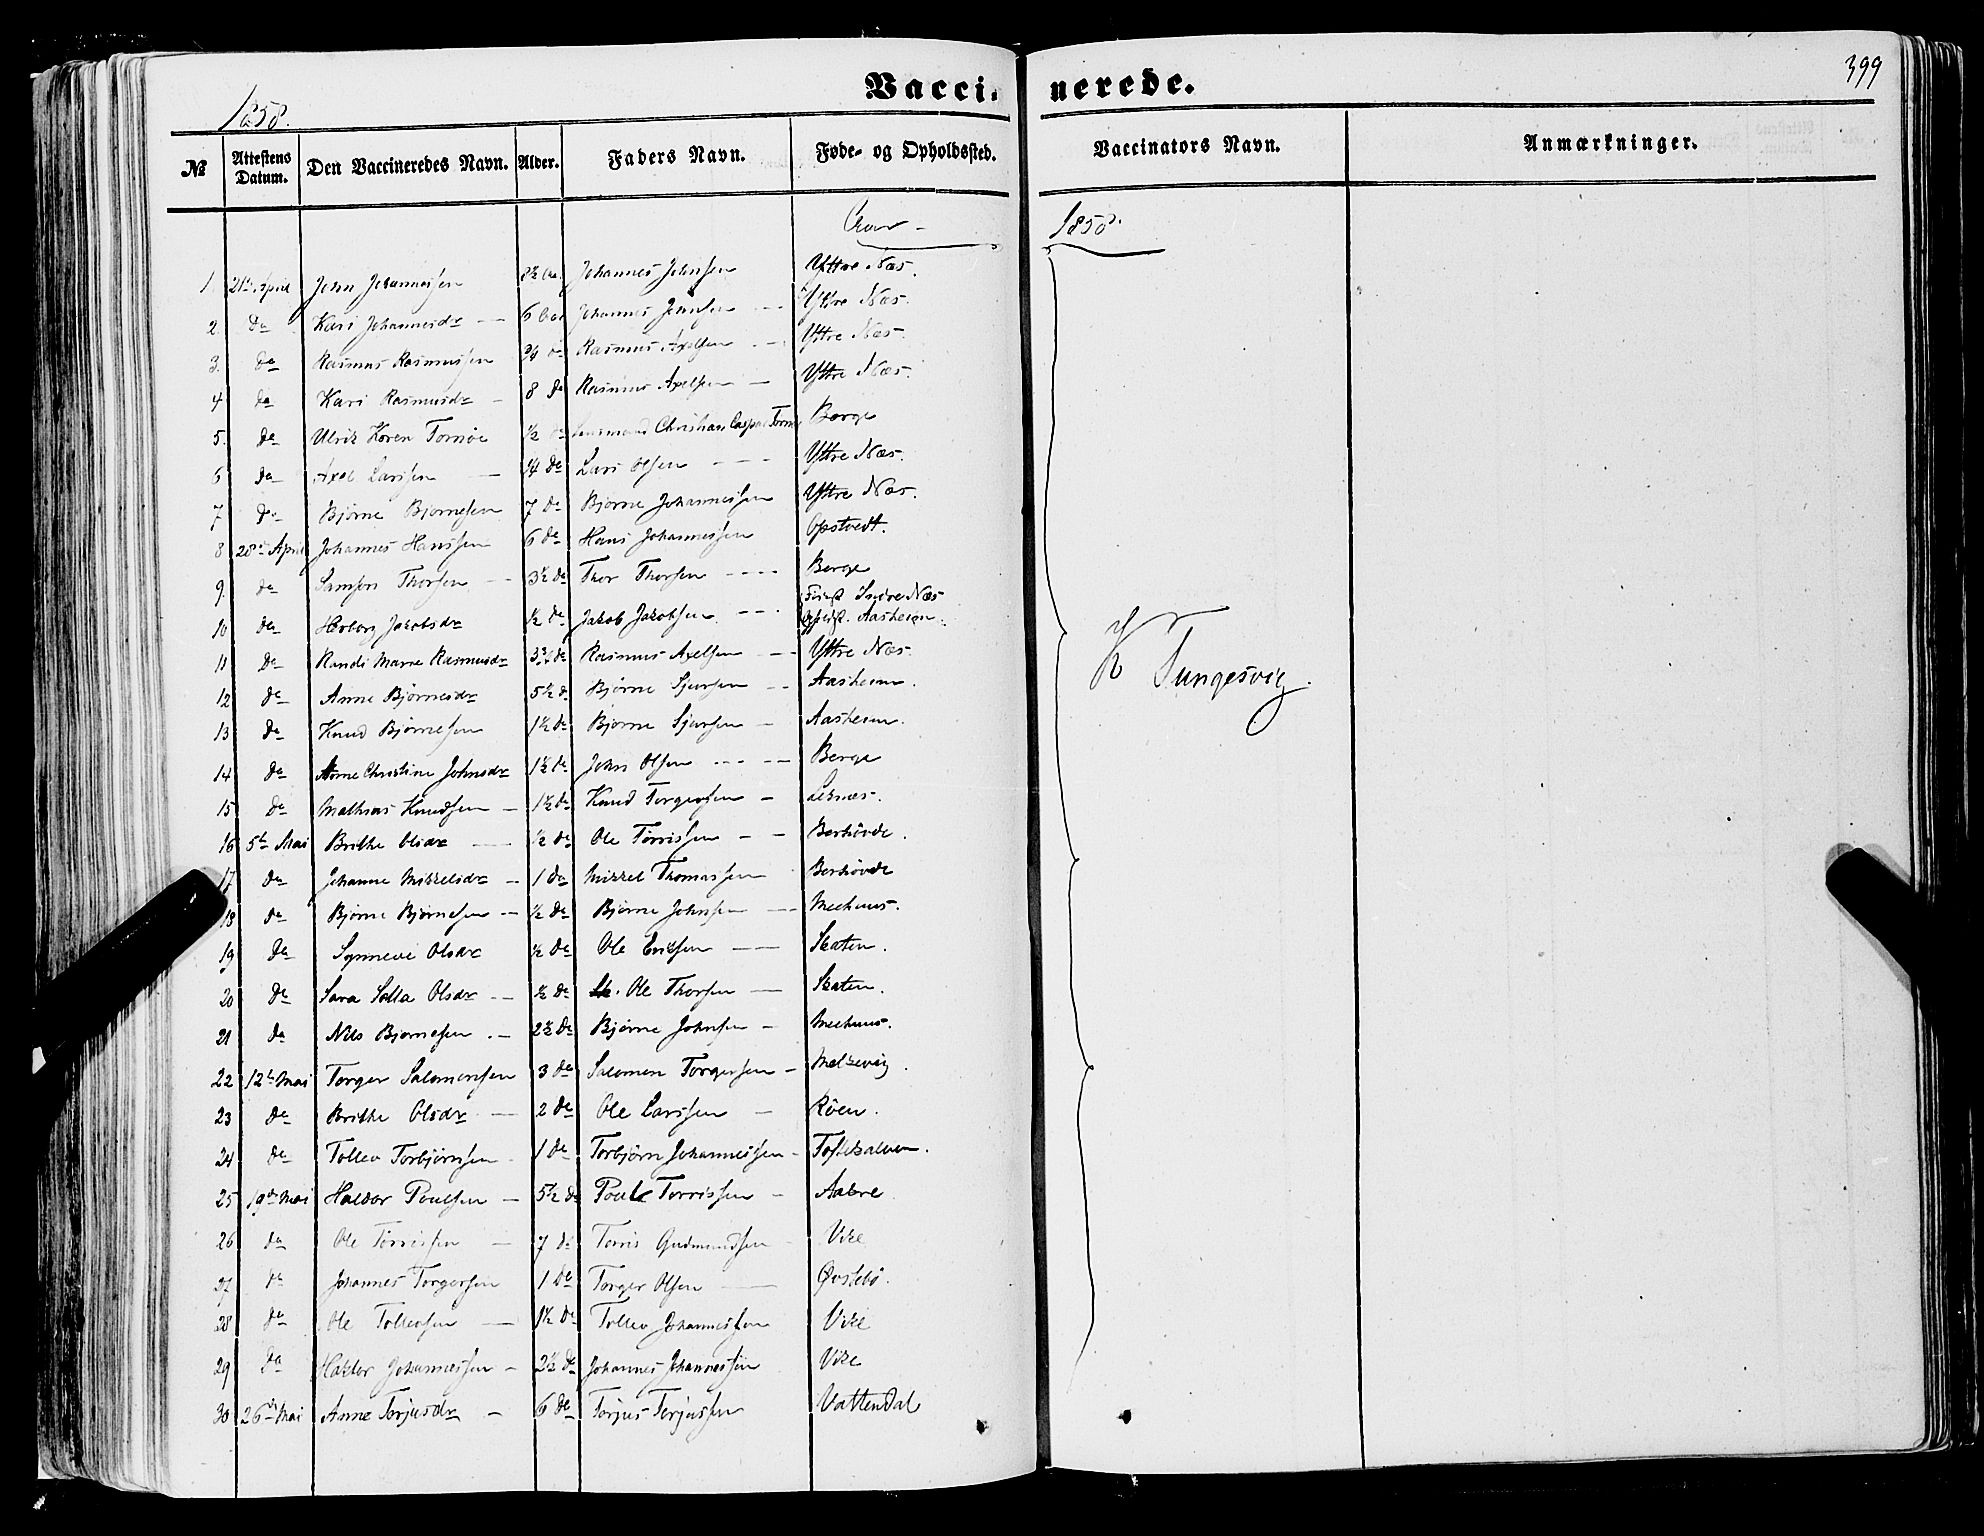 Vaccinerede.
399
1858.
№ | Attestens Datum. | Den Vaccineredes Navn. | Alder. | Faders Navn. | Føde- og Opholdssted. | Vaccinators Navn. | Anmærkninger.
Aar 1858.
1. | 21de April | John Johannessen | | Johannes Johnsen | Yttre Næs.
2. | do | Kari Johannesdr | 6 | Johannes Johnsen | Yttre Næs.
3. | do | Rasmus Rasmussen | | Rasmus Axelsen | Yttre Næs.
4 | do | Kari Rasmusdr | 8 do | Rasmus Axelsen | Yttre Næs.
5. | do | Ulrik Koren Tornöe | ½ do | Lensmand Christian Caspar | Berge
6 | do | Axel Larssen | | Lars Olsen | Yttre Næs.
7 | do | Bjørne Bjørnesen | 7 do | Bjørne Johannessen | Yttre Næs.
8 | 28de April | Johannes Hanssen | 6 do | Hans Johannessen | Opstvedt.
9. | do | Samson Thorsen | 3½ do | Thor Thorsen | Berge
10 | do | Herborg Jakobsdr | ½ do | Jakob Jakobsen | Indre Næs Aasheim.
11 | do | Randi Marie Rasmusdr | | Rasmus Axelsen | Yttre Næs.
12 | do | Anne Bjørnesdr | 5½ d | Bjørne Sjursen | Aasheim.
13 | do | Knud Bjørnesen | 1½ do | Bjørne Sjursen | Aasheim.
14 | do | Anne Christine Johnsdr | 1½ do | John Olsen | Berge
15 | do | Mathias Knudsen | 1½ do | Knud Torgersen | Leknæs.
16 | 5te Mai | Brithe Olsdr | ½ do | Ole Tørrissen | Berhövde.
17 | do | Johanne Mikkelsdr | 1 do | Mikkel Thomassen | Berhövde
18 | do | Bjørne Bjørnesen | ½ do | Bjørne Johnsen | Meehuus.
19 | do | Synneve Olsdr | ½ do | Ole Eriksen | Skaten.
20 | do | Sara Salla Olsdr | ½ do | Ole Thorsen | Skaten.
21 | do | Nils Bjørnesen | 2½ do | Bjørne Johnsen | Meehuus.
22 | 12te Mai | Torger Salomonsen | 3 do | Salomon Torgersen | Melkevig.
23 | do | Brithe Olsdr | 2 do | Ole Larssen | Röen.
24 | do | Tollev Torbjørnsen | 1 do | Torbjørn Johannessen |
25 | 19de Mai | Haldor Poulsen | 5½ do | Poul Torrissen | Aakre
26 | do | Ole Tørrissen | 7 do | Torris Gudmundsen | Vike
27 | do | Johannes Torgersen | 1 do | Torger Olsen | Øvstebö.
28 | do | Ole Tollevsen | 1½ do | Tollev Johannessen | Vike
29 | do | Haldor Johannessen | 2½ do | Johannes Johannessen | Vike
30 | 26de Mai | Anne Torjusdr | 6 do | Torjus Torjussen | Vattendal
K Tungesvig.